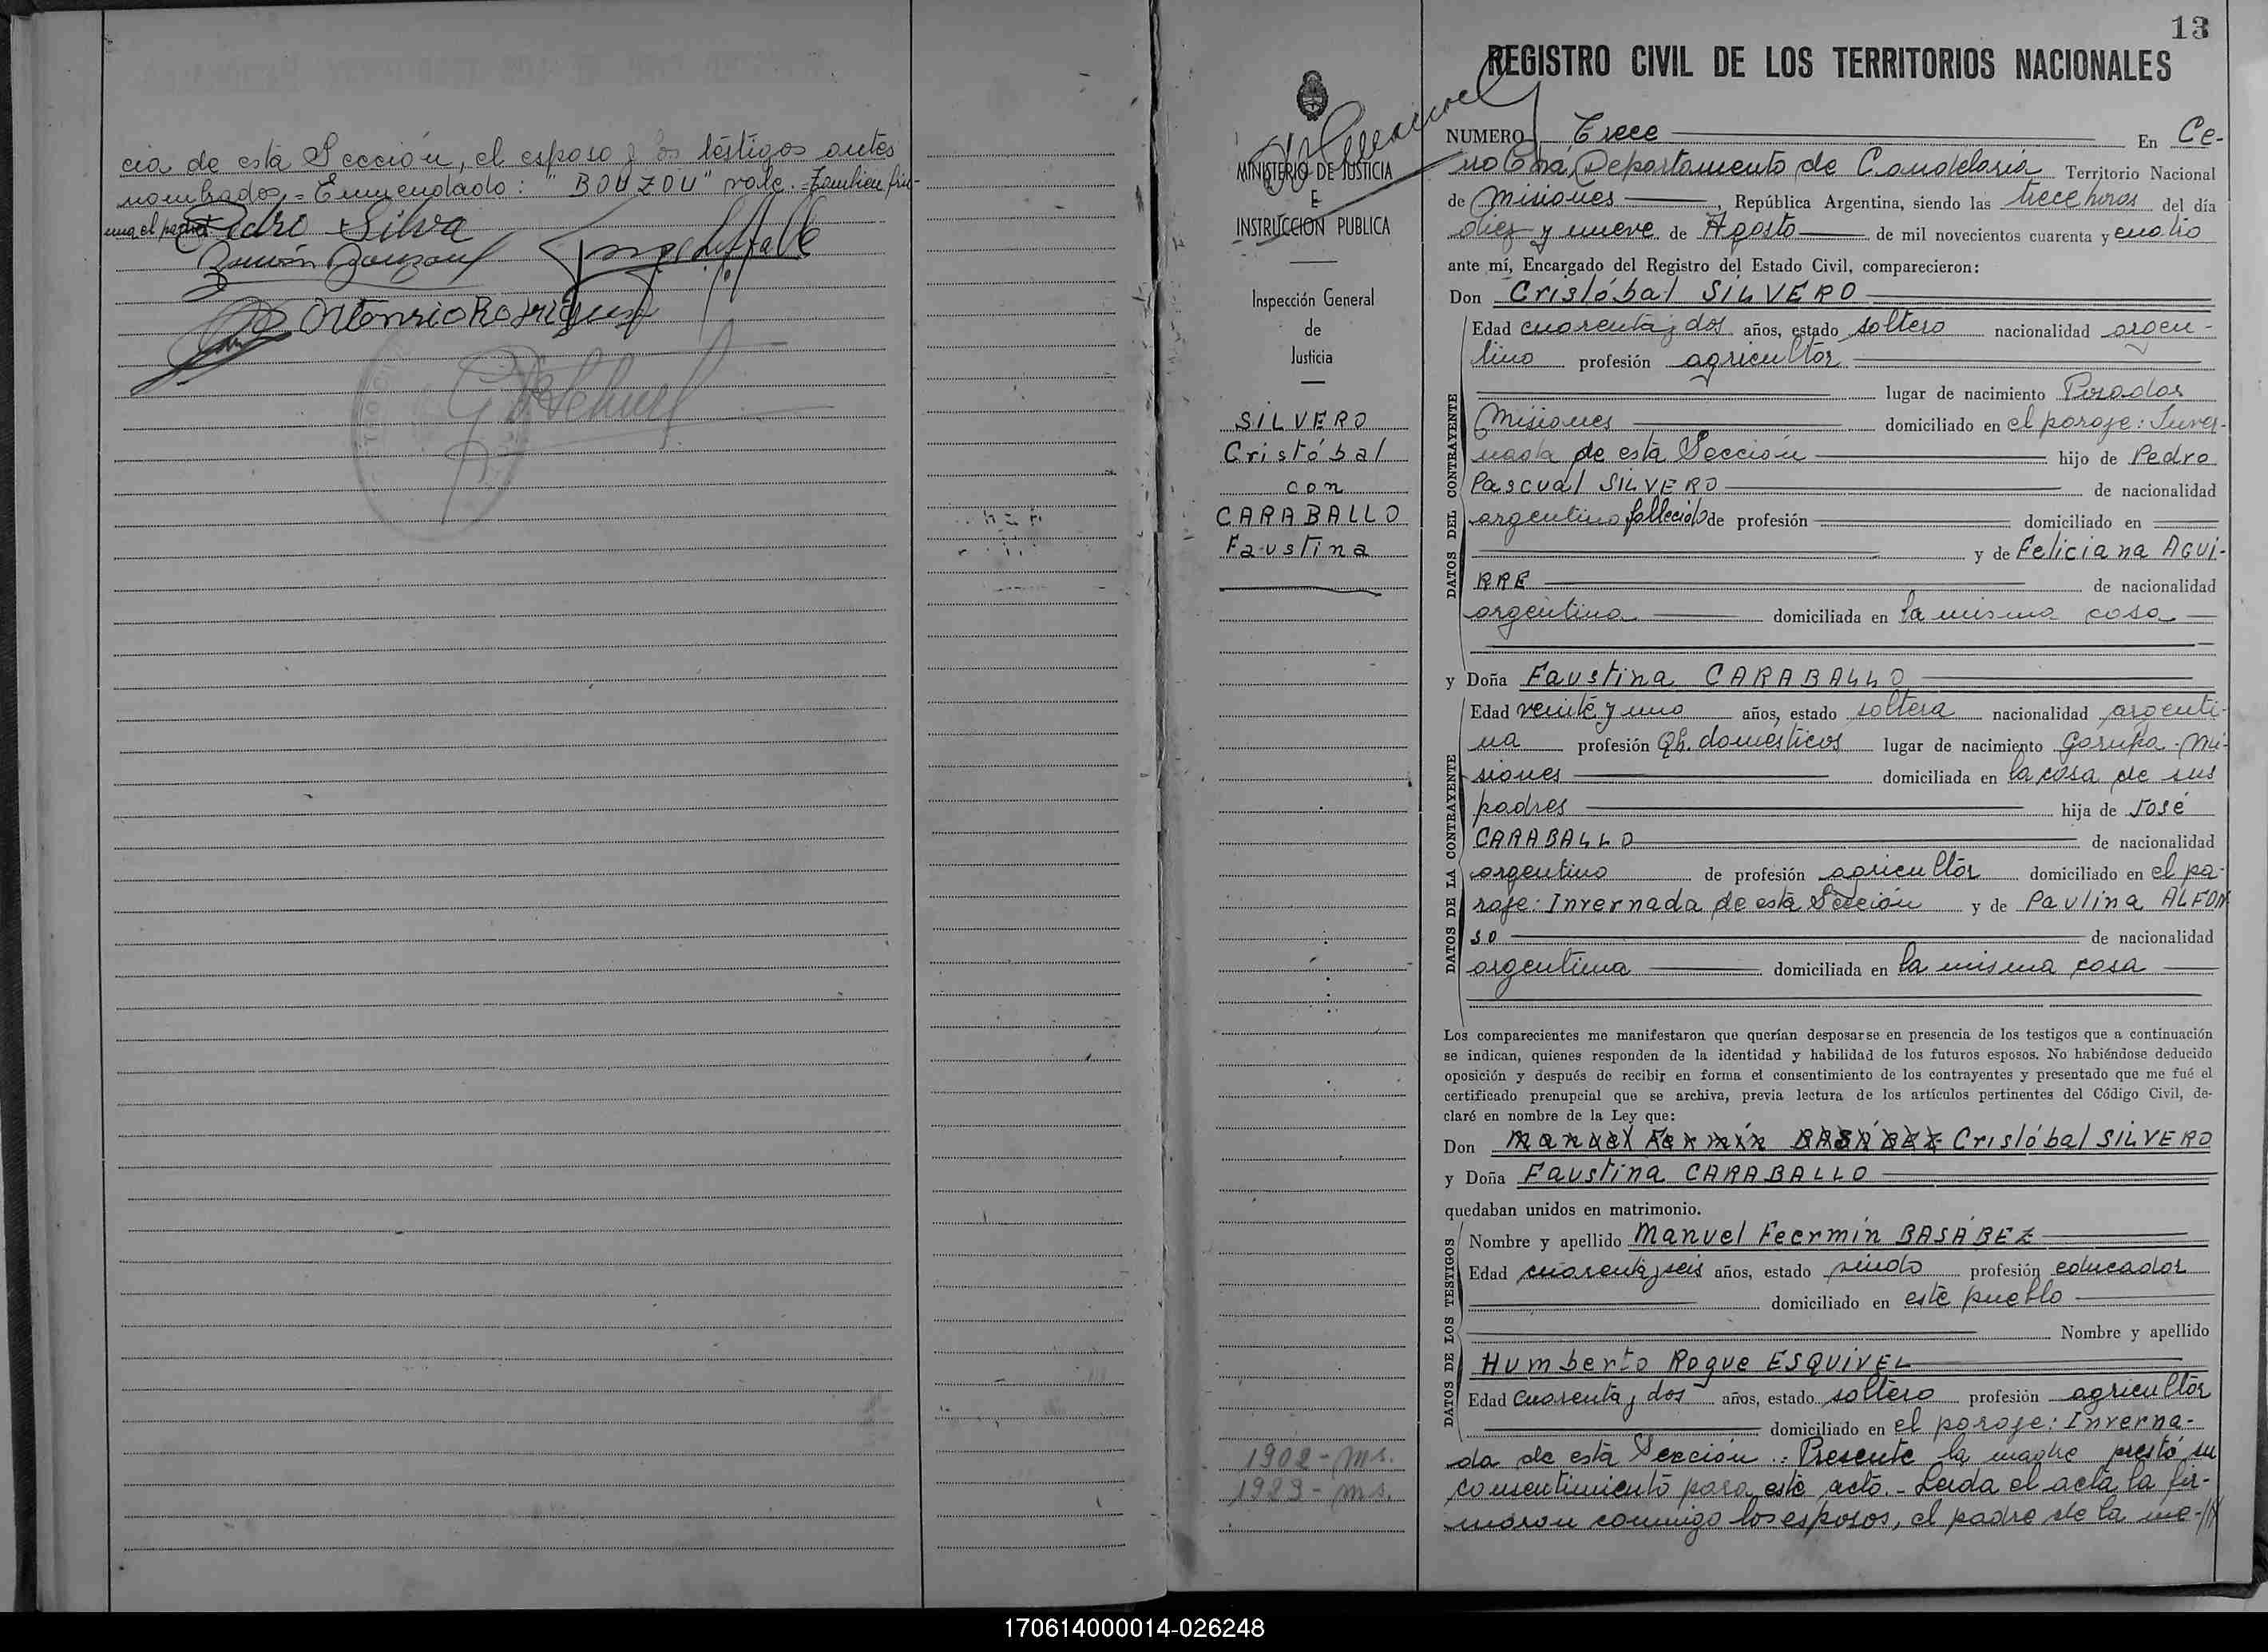 cia de esta Sección, el esposo y los testigos antes
nombrados = Enmendado: "BOUZOU" vale. = También fir-
ma el padre
Pedro Silva
Antonio Rodriguez
13
REGISTRO CIVIL DE LOS TERRITORIOS NACIONALES
MINISTERIO DE JUSTICIA
E
INSTRUCCIÓN PUBLICA
Inspección General
de
Justicia
SILVERO
Cristóbal
con
CARABALLO
Faustina
1902 - ms.
1983 - ms.
NUMERO Trece En Ce-
rro Cora, Departamento de Candelaria Territorio Nacional
de Misiones, República Argentina, siendo las trece horas del día
diez y nueve de Agosto de mil novecientos cuarenta y cuatro
ante mí, Encargado del Registro del Estado Civil, comparecieron:
Don Cristóbal SILVERO
DATOS DEL CONTRAYENTE
Edad cuarenta y dos años, estado soltero nacionalidad argen-
tino profesión agricultor
lugar de nacimiento Posadas
Misiones domiciliado en el paraje: Inver-
nada de esta Sección hijo de Pedro
Pascual SILVERO de nacionalidad
argentino fallecido de profesión domiciliado en
y de Feliciana AGUI-
RRE de nacionalidad
argentina domiciliada en la misma casa
y Doña Faustina CARABALLO
DATOS DE LA CONTRAYENTE
Edad veinte y uno años, estado soltera nacionalidad argenti-
na profesión Qh. domésticos lugar de nacimiento Garupa - Mi-
siones domiciliada en la casa de sus
padres hija de José
CARABALLO de nacionalidad
argentino de profesión agricultor domiciliado en el pa-
raje: Invernada de esta Sección y de Paulina ALFON
SO de nacionalidad
argentina domiciliada en la misma casa
Los comparecientes me manifestaron que querían desposarse en presencia de los testigos que a continuación
se indican, quienes responden de la identidad y habilidad de los futuros esposos. No habiéndose deducido
oposición y después de recibir en forma el consentimiento de los contrayentes y presentado que me fué el
certificado prenupcial que se archiva, previa lectura de los artículos pertinentes del Código Civil, de-
claré en nombre de la Ley que:
Don Manuel Fermín BASÁBEZ Cristóbal SILVERO
y Doña Faustina CARABALLO
quedaban unidos en matrimonio.
DATOS DE LOS TESTIGOS
Nombre y apellido Manuel Feermín BASÁBEZ
Edad cuarenta y seis años, estado viudo profesión educador
domiciliado en este pueblo
Nombre y apellido
Humberto Roque ESQUIVEL
Edad cuarenta y dos años, estado soltero profesión agricultor
domiciliado en el paraje: Inverna-
da de esta Sección.: Presente la madre prestó su
consentimiento para este acto. - Leída el acta la fir-
maron conmigo los esposos, el padre de la me-///
170614000014-026248